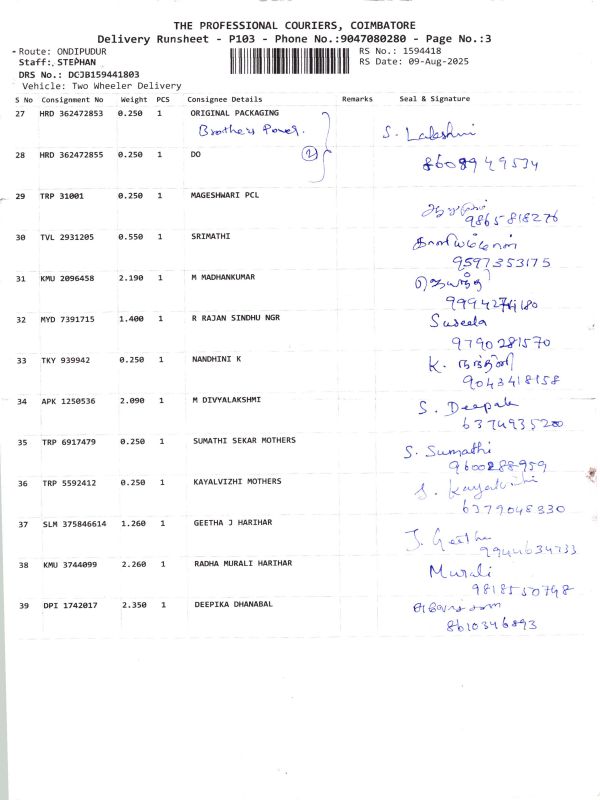 THE PROFESSIONAL COURIERS, COIMBATORE
Delivery Runsheet - P103 - Phone No.:9047080280 - Page No.:3
Route: ONDIPUDUR
RS No.: 1594418
Staff: STEPHAN
RS Date: 09-Aug-2025
DRS No.: DCJB159441803
Vehicle: Two Wheeler Delivery
S No Consignment No Weight PCS Consignee Details Remarks Seal & Signature
27 HRD 362472853 0.250 1 ORIGINAL PACKAGING
Brothers Power. S. Lakshmi
28 HRD 362472855 0.250 1 DO 2
8608949534
29 TRP 31001 0.250 1 MAGESHWARI PCL
9865818276
30 TVL 2931205 0.550 1 SRIMATHI
9597353175
31 KMU 2096458 2.190 1 M MADHANKUMAR
32 MYD 7391715 1.400 1 R RAJAN SINDHU NGR Suseela
9790281570
33 TKY 939942 0.250 1 NANDHINI K K. நந்தினி
9043418158
34 APK 1250536 2.090 1 M DIVYALAKSHMI S. Deepak
6374935200
35 TRP 6917479 0.250 1 SUMATHI SEKAR MOTHERS S. Sumathi
9600288959
36 TRP 5592412 0.250 1 KAYALVIZHI MOTHERS S. Kayalvizhi
6379048330
37 SLM 375846614 1.260 1 GEETHA J HARIHAR J. Geetha
9944634733
38 KMU 3744099 2.260 1 RADHA MURALI HARIHAR Murali
9818550748
39 DPI 1742017 2.350 1 DEEPIKA DHANABAL
8610346893